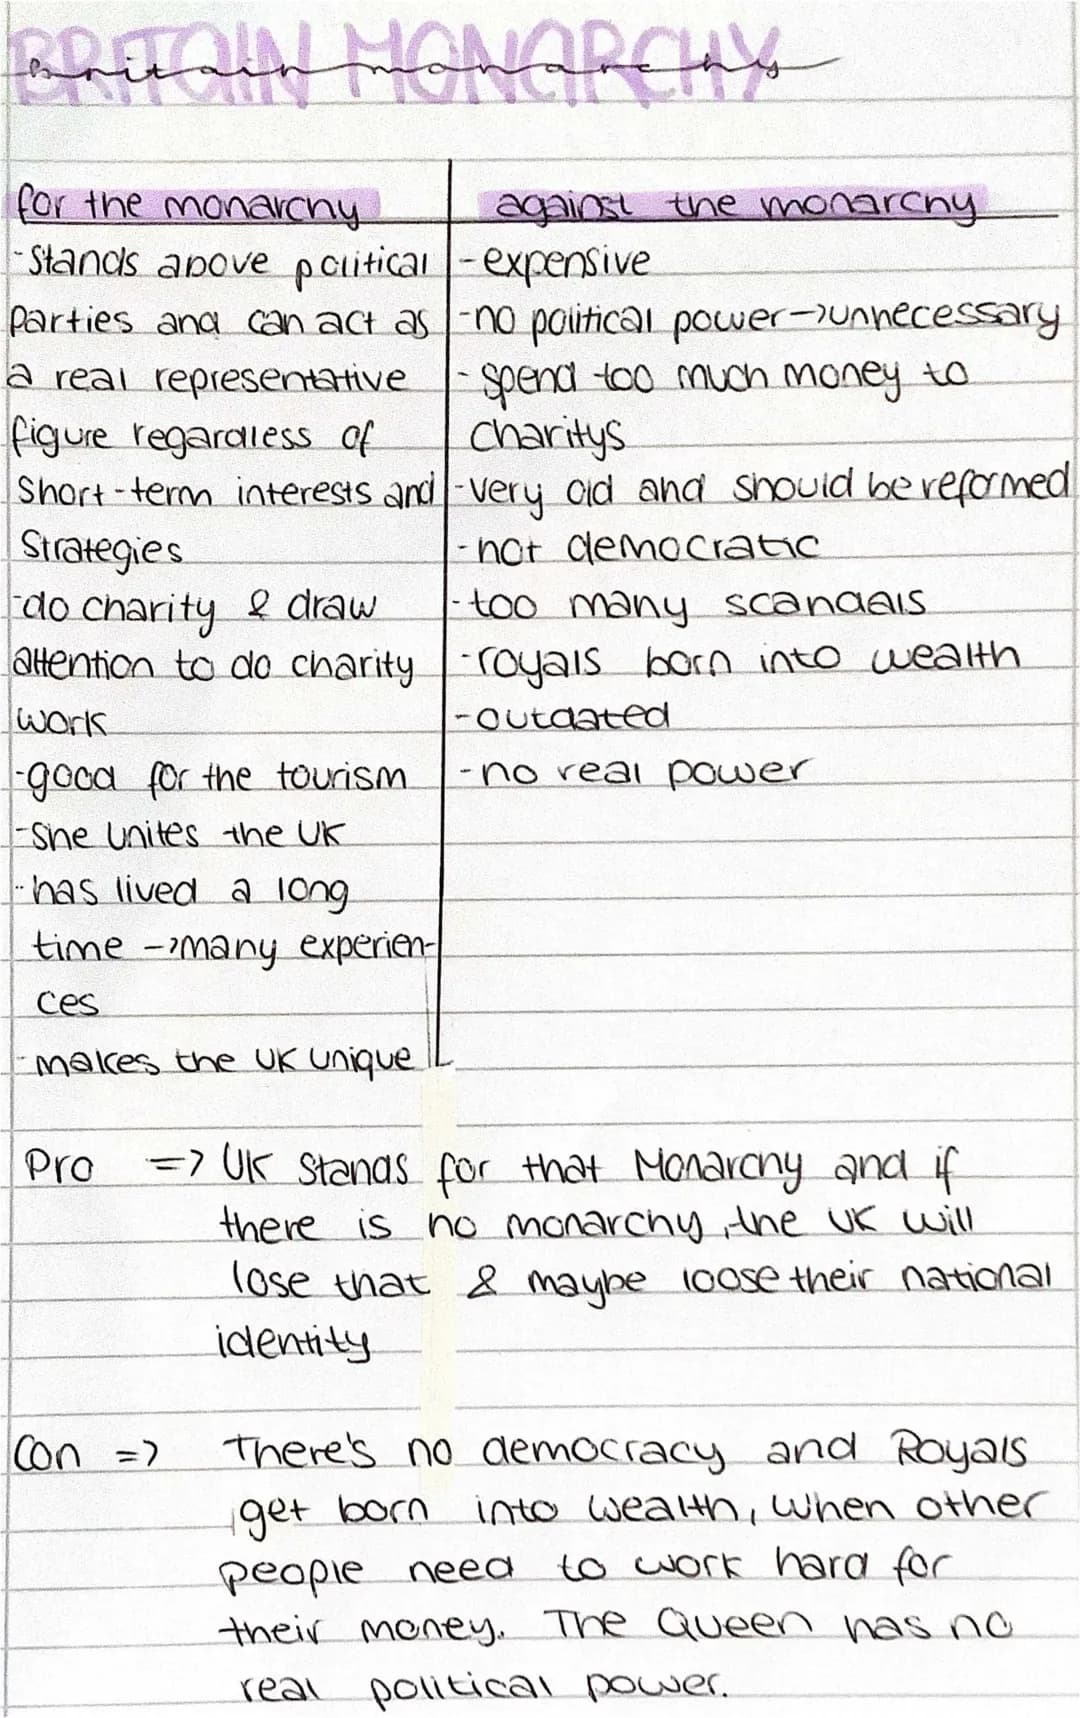 BRITAIN MONARCHY
Britain monarchy
for the monarchy
-Stands above political
parties and can act as
a real representative
figure regardless of
Short-term interests and
Strategies
-do charity & draw
attention to do charity
work
-good for the tourism
-She unites the UK
-has lived a long
time -> many experien-
ces
-makes the UK unique
against the monarchy
-expensive
-no political power->unnecessary
-spend too much money to
charitys
-very old and should be reformed
-not democratic
-too many scandals
-royals born into wealth
-outdated
-no real power
Pro => UK Stands for that Monarchy and if
there is no monarchy, the UK will
lose that & maybe loose their national
identity
Con => There's no democracy and Royals
get born into wealth, when other
people need to work hard for
their money. The Queen has no
real political power.